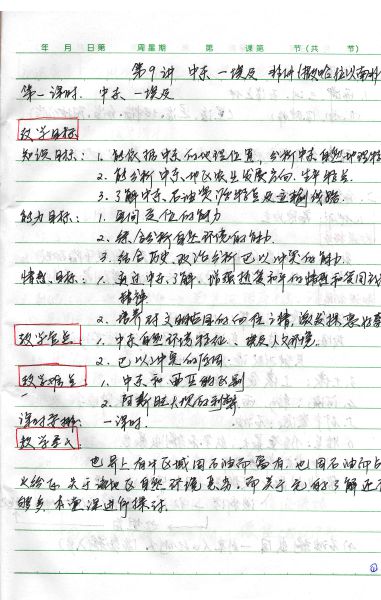 年 月 日第 周星期 第 课第 节(共 节)
第9讲 中东 一埃及 非洲(撒哈拉以南非
第一课时. 中东 一埃及
教学目标
知识目标: 1. 能依据中东的地理位置, 分析中东自然地理特
2. 能分析中东地区农业发展方向、生产特点.
3. 了解中东石油资源特点及运输线路.
能力目标: 1. 空间定位的能力
2. 综合分析自然环境的能力.
3. 结合历史政治分析巴以冲突的能力.
情感目标: 1. 通过中东了解, 增强热爱和平的情感和爱国
精神
2. 培养对文明古国的
教学重点 1. 中东自然环境特征、埃及人文环境.
2. 巴以冲突的原因
教学难点 1. 中东和西亚的区别
2. 阿斯旺大坝的利弊
课时安排: 一课时.
教学导入
世界上有个区域因石油而富有, 也因石油而
关于该地区自然环境 而关于它的了解还不
够, 本堂课进行探讨.
①